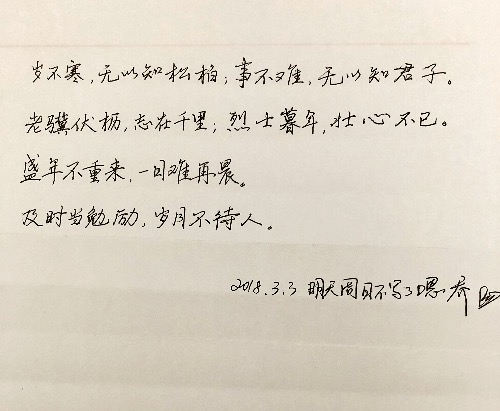 岁不寒，无以知松柏；事不难，无以知君子。
老骥伏枥，志在千里；烈士暮年，壮心不已。
盛年不重来，一日难再晨。
及时当勉励，岁月不待人。
2018.3.3 明天周日不写了嘿